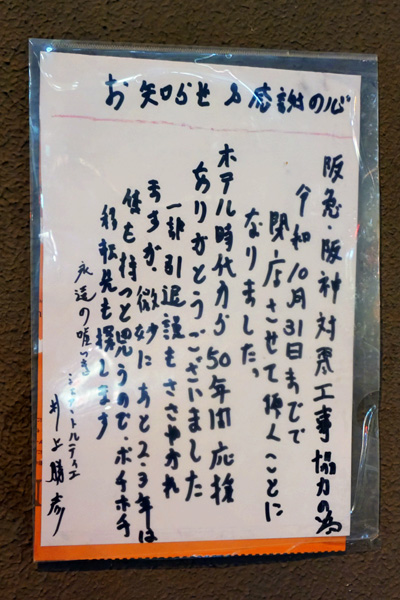 お知らせ & 感謝の心
阪急・阪神対震工事協力の為
令和10月31日までで
閉店させて頂くことに
なりました。
ホテル時代から50年間応援
ありがとうございました
一部引退説もささやかれ
ますが、微妙にあと2.3年は
体も持つと思うので、ボチボチ
移転先も探します
永遠の嘘つき
井上勝彦